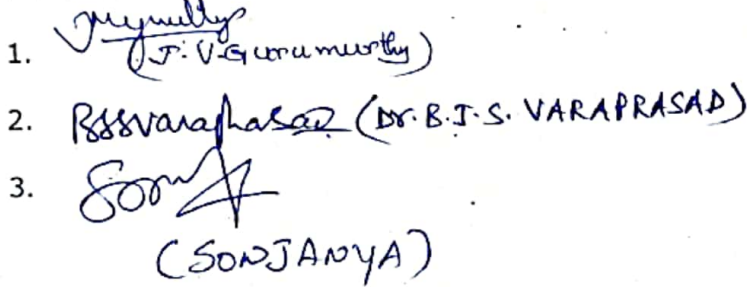 1.
(J. V. Gurumurthy)
2. BJSVaraprasad (Dr. B. J. S. VARAPRASAD)
3.
(SOWJANYA)